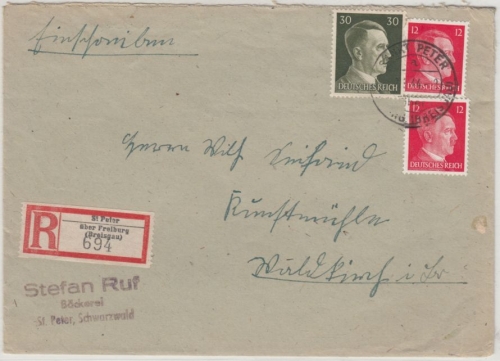 Einschreiben
30 30
DEUTSCHES REICH
12
12 12
DEUTSCHES REICH
ST PETER
Herrn Wilh
Kunstmühle
Waldkirch i. Br.
R
St Peter
über Freiburg
(Breisgau)
694
Stefan Ruf
Bäckerei
St. Peter, Schwarzwald